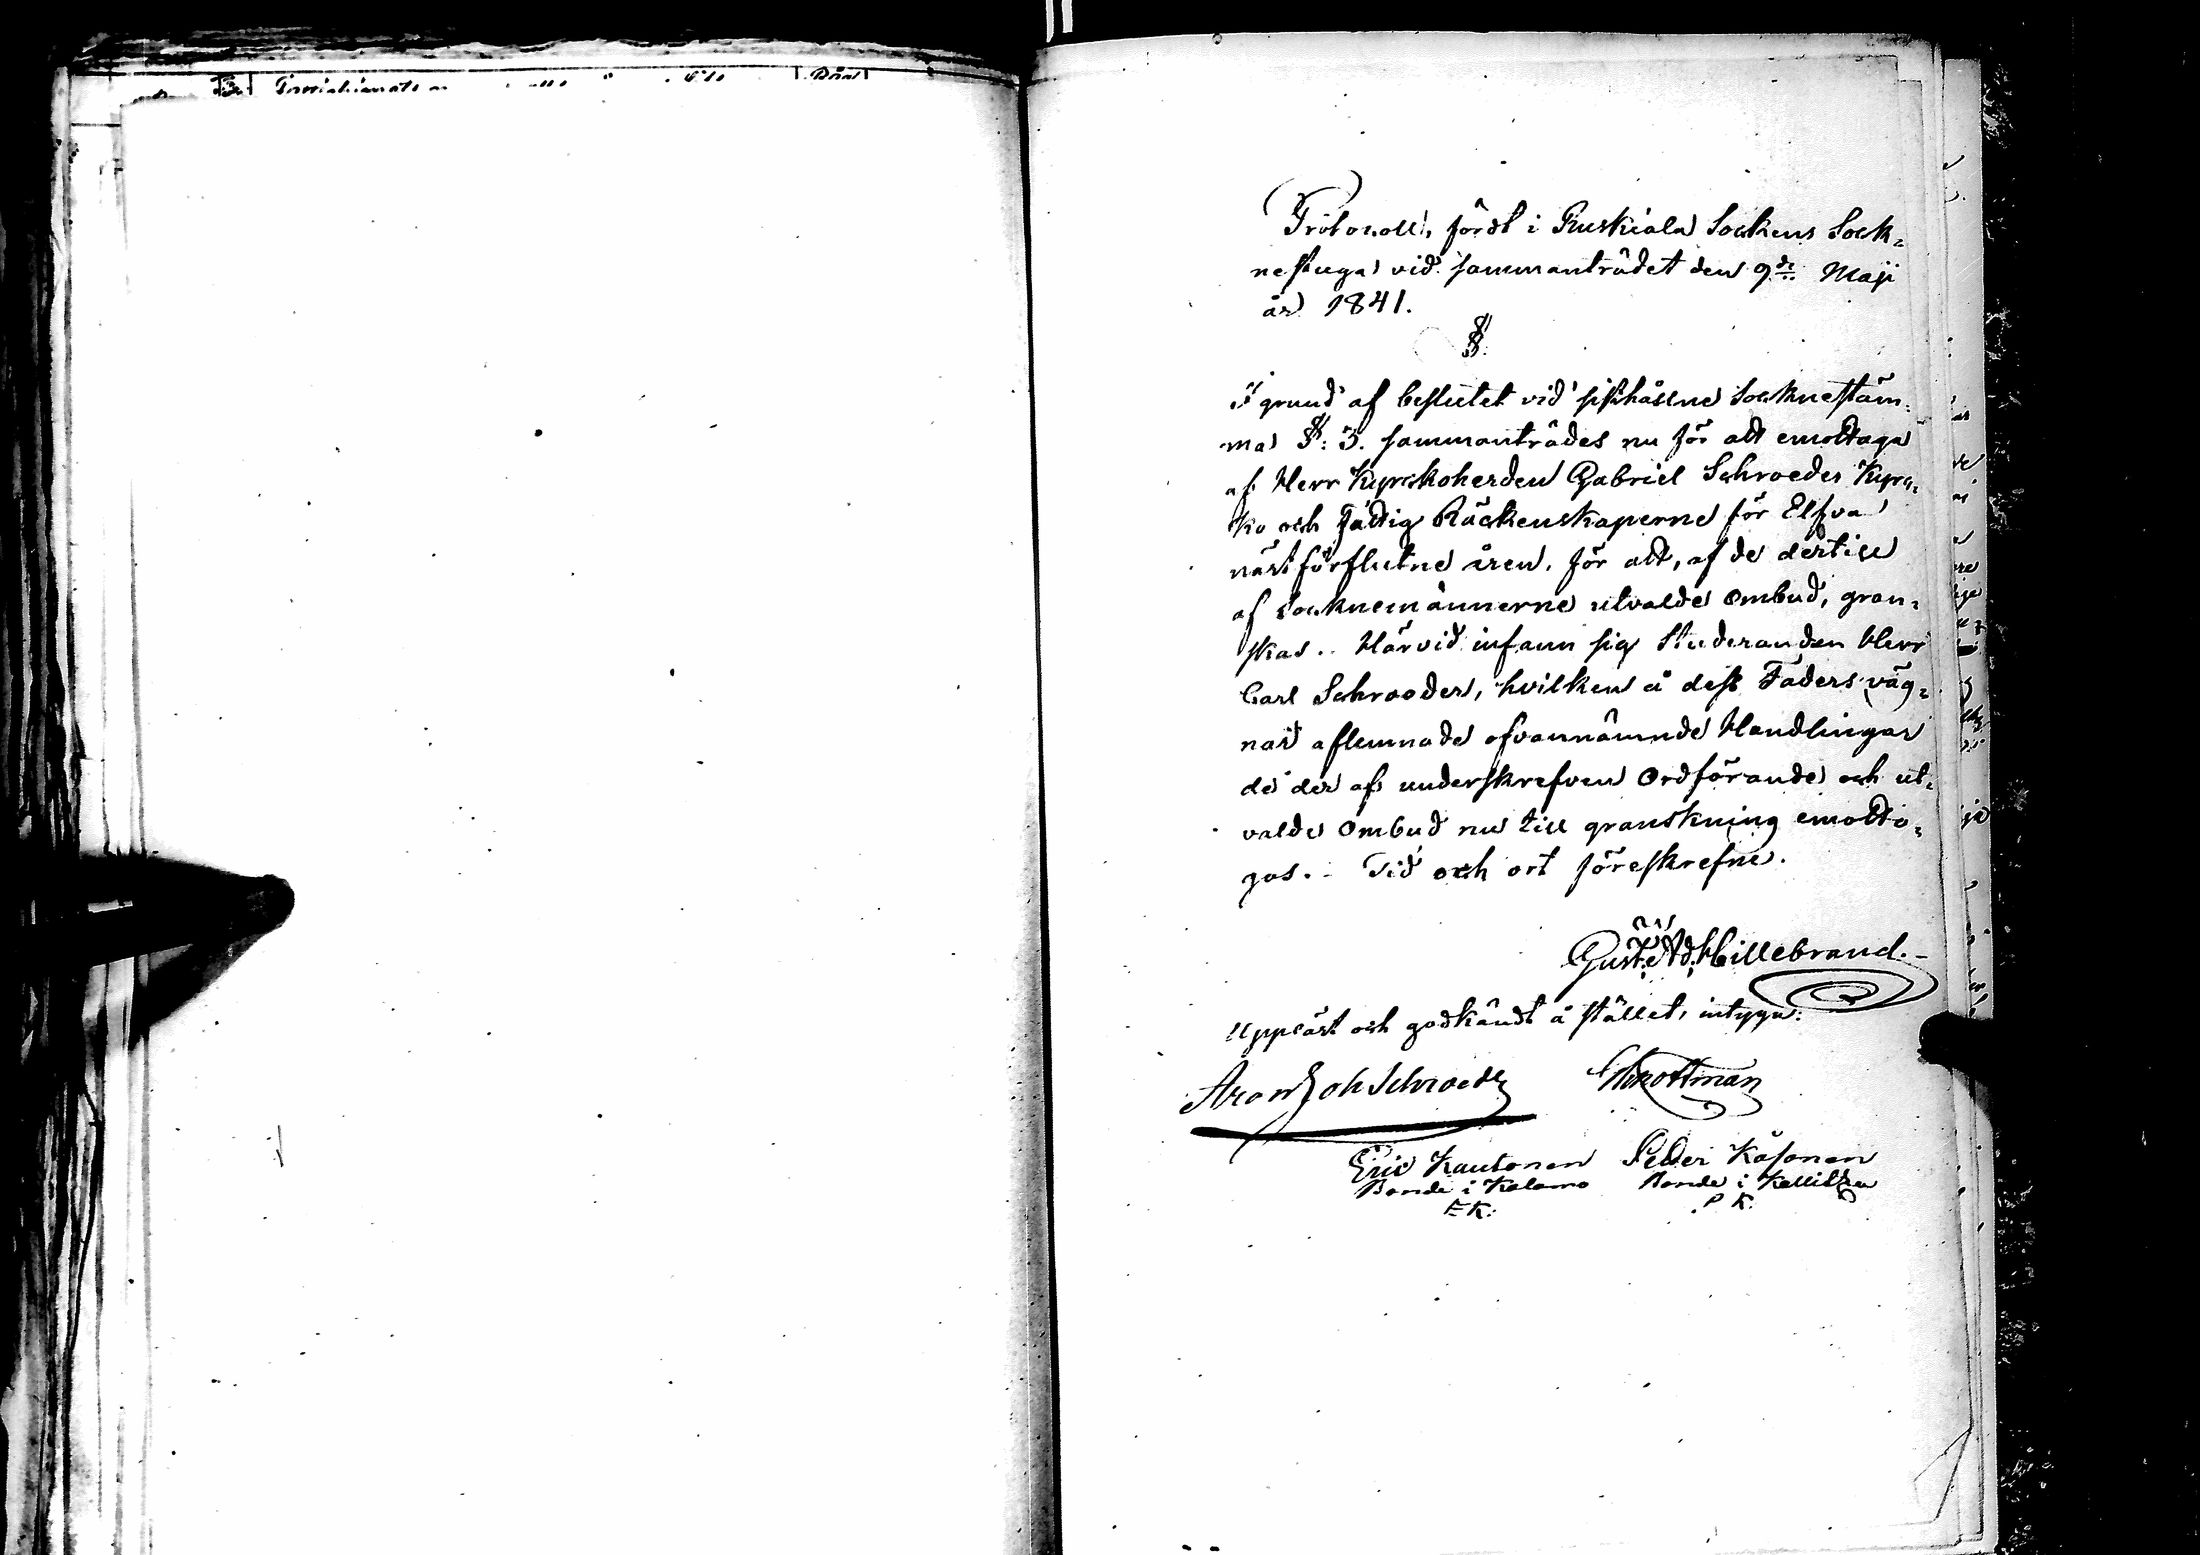 Protokoll, fördt i Ruskiala Sockens Sock-
nestuga vid sammanträdet den 9de Maji
år 1841.
§.
I grund af beslutet vid sisthållne Socknestäm-
ma §: 3. sammanträdes nu för att emottaga
af Herr Kyrckoherden Gabriel Schroeder Kyrc-
ko och Fattig Räckenskaperne för Elfva
nästförflutne åren, för att, af de dertill
af Socknemännerne utvalde Ombud, gran-
skas. Härvid infann sig Studeranden Herr
Carl Schroeder, hvilken å dess Faders väg-
nar aflemnade ofvannämnde Handlingar
de der af underskrefven Ordförande och ut-
valde Ombud nu till granskning emotto-
gos. - Tid och ort föreskrefne.
Gust. Ad. Hillebrand. -
Uppläst och godkändt å stället, intyga:
Aron Joh Schroeder Schrottman
Eric Kautonen Peder Käsonen
Bonde i Kalamo Bonde i
EK. P K.